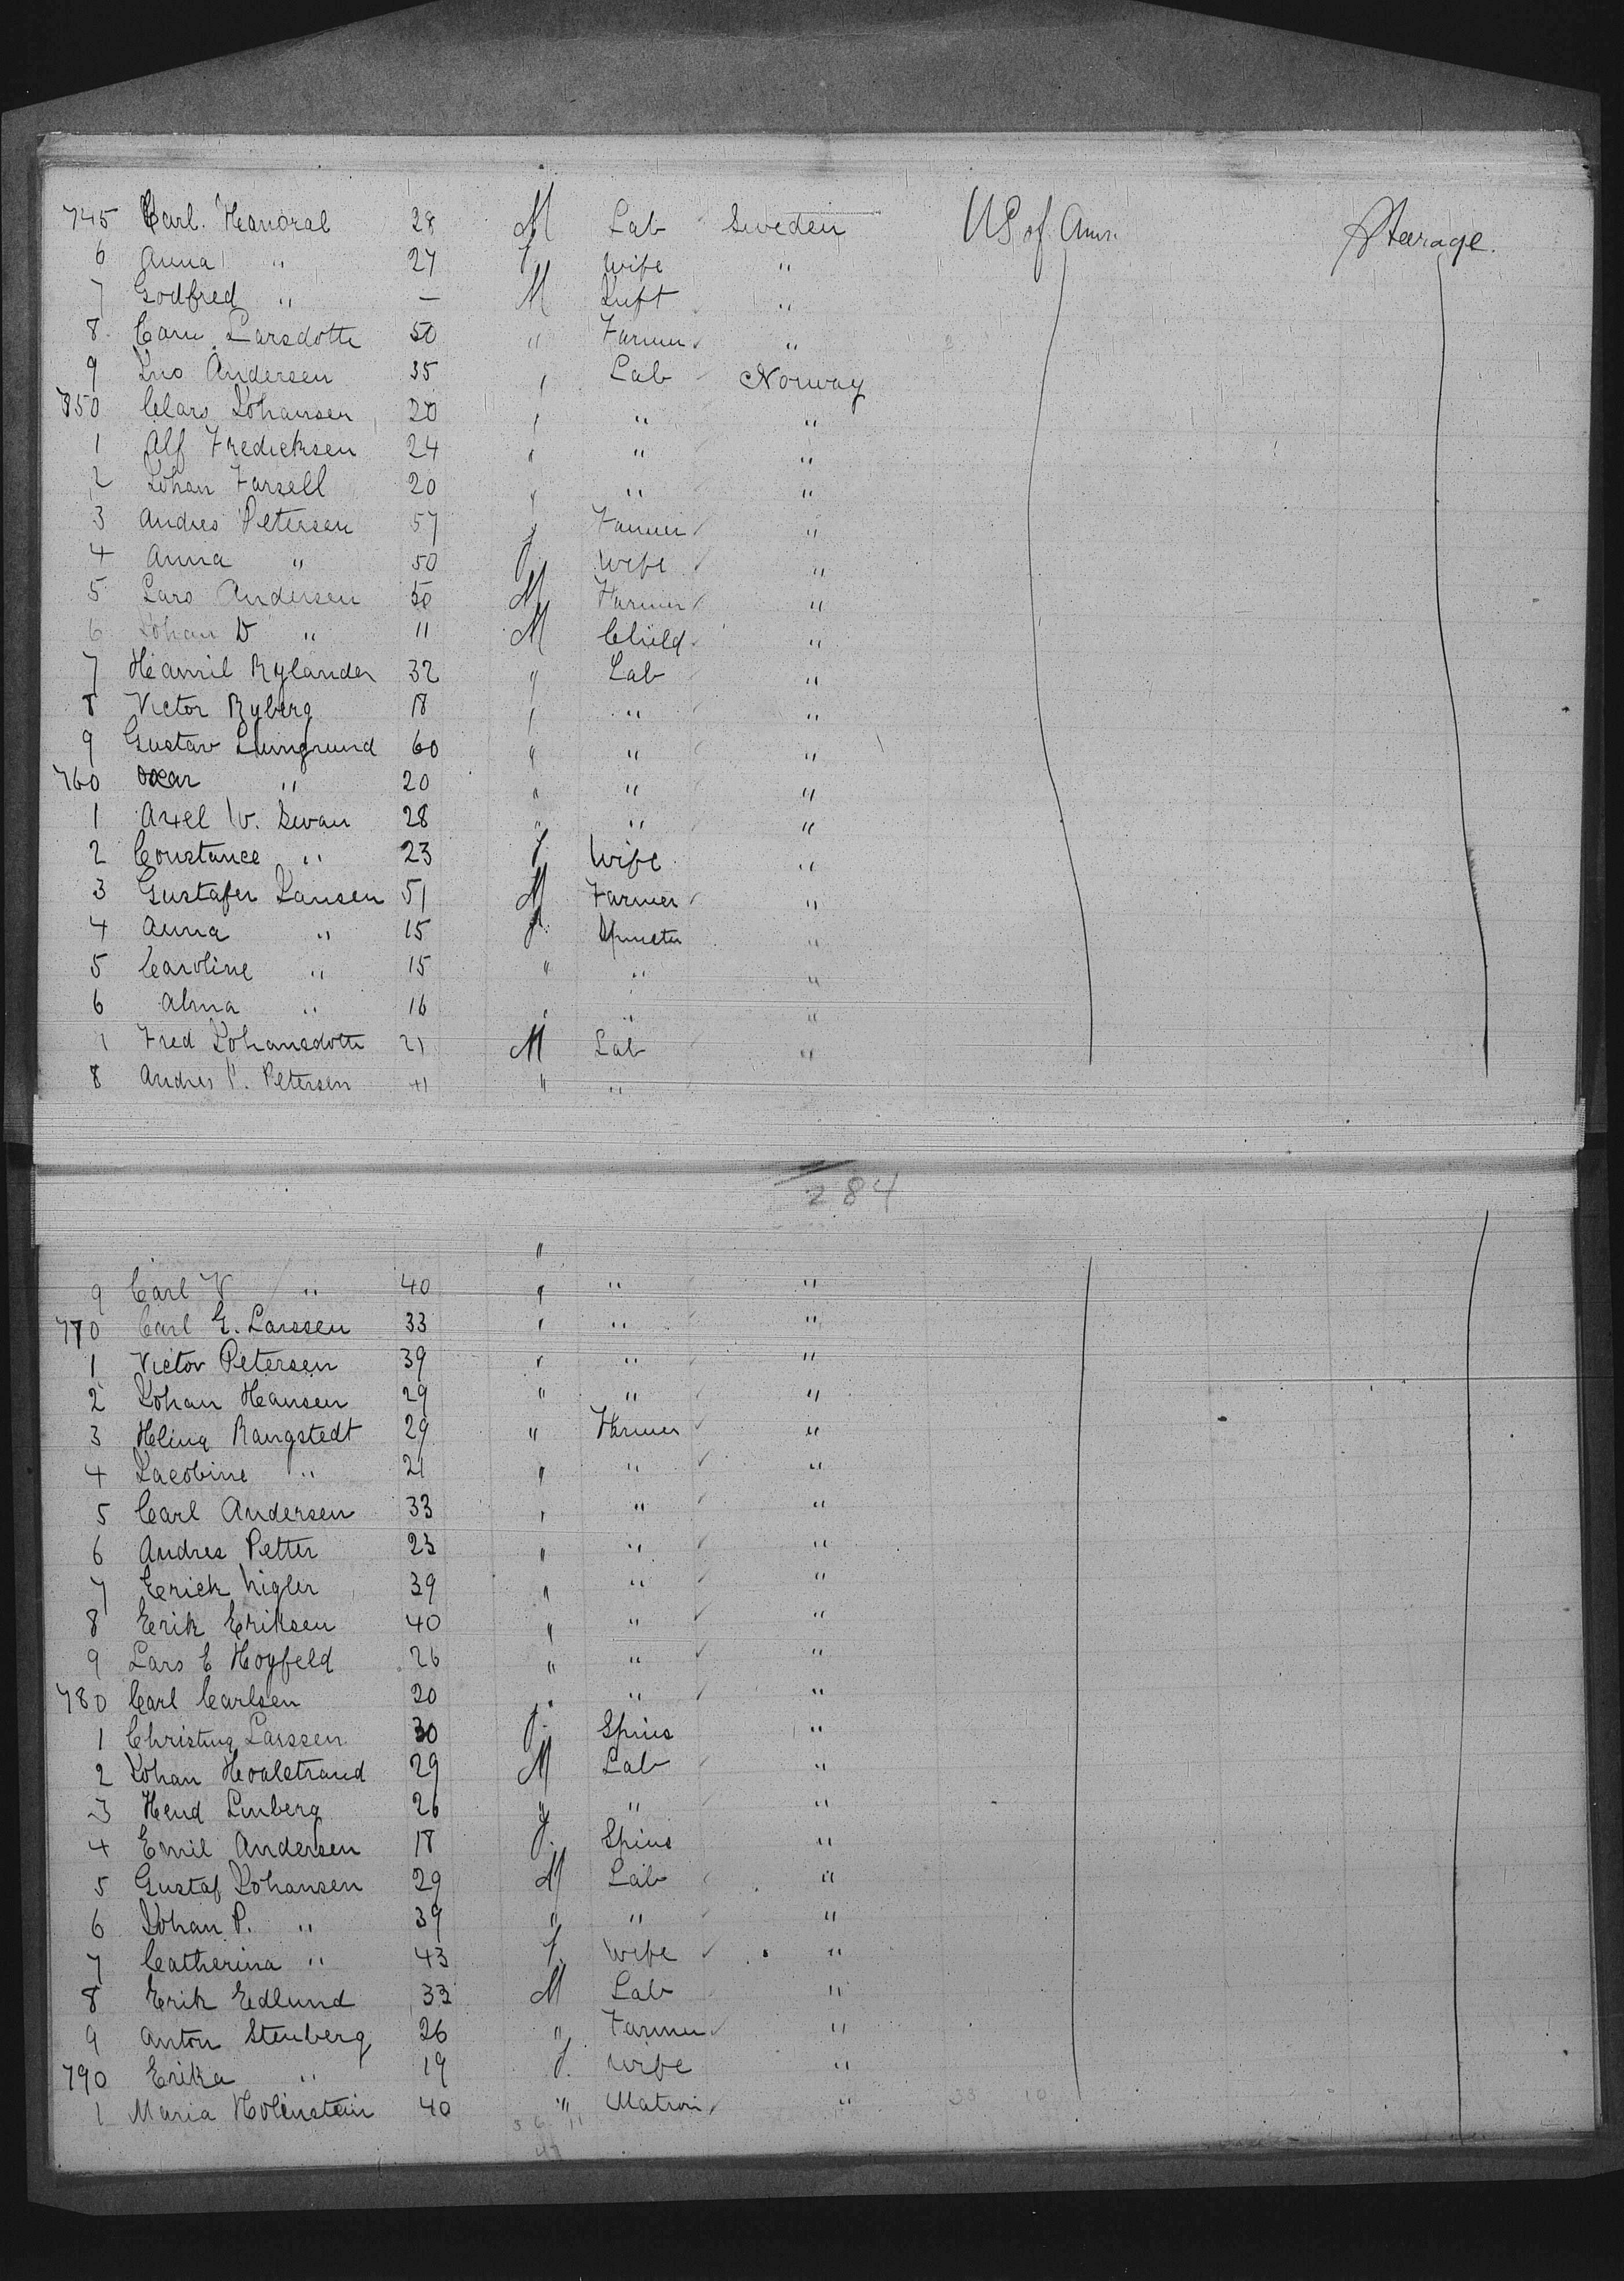 745 Carl. Handral 28 M Lab Sweden US of Amer. Stearage.
6 Anna " 27 f wife "
7 Godfred " — M Inft "
8 Carn. Larsdotte 50 " Farmer "
9 Ino Andersen 35 " Lab Norway
750 Clars Johansen 20 " " "
1 Alf Fredicksen 24 " " "
2 Johan Farsell 20 " " "
3 Andres Petersen 57 " Farmer "
4 Anna " 50 f wife "
5 Lars Andersen 50 M Farmer "
6 Johan D " 11 M Child "
7 Hamil Rylander 32 " Lab "
8 Victor Ryberg 18 " " "
9 Gustav Lumgrund 60 " " "
760 Oscar " 20 " " "
1 Axel W. Swan 28 " " "
2 Constance " 23 f Wife "
3 Gustafer Jansen 51 M Farmer "
4 Anna " 15 f Spinster "
5 Caroline " 15 " " "
6 Alma " 16 " " "
7 Fred Johansdotte 21 M Lab "
8 Andres P. Petersen 41 " "
284
"
9 Carl V " 40 " " "
770 Carl G. Larssen 33 " " "
1 Victor Petersen 39 " " "
2 Johan Hansen 29 " " "
3 Helina Rangstedt 29 " Farmer "
4 Jacobine " 21 " " "
5 Carl Andersen 33 " " "
6 Andres Petter 23 " " "
7 Erick Nigler 39 " " "
8 Erik Eriksen 40 " " "
9 Lars E Hoyfeld 26 " " "
780 Carl Carlsen 20 " " "
1 Christina Larssen 30 f. Spins "
2 Johan Hoalstrand 29 M Lab "
3 Hend Linberg 26 " " "
4 Emil Andersen 18 f. Spins "
5 Gustaf Johansen 29 M Lab "
6 Johan P. " 39 " " "
7 Catherina " 43 f. Wife "
8 Erik Edlund 33 M Lab "
9 Anton Stenberg 26 " Farmer "
790 Erika " 19 f. Wife "
1 Maria Holenstein 40 " Matron "